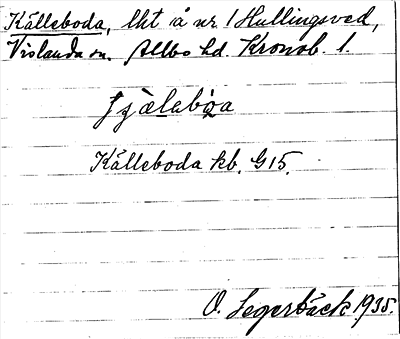 Källeboda, lht å nr 1 Hullingsved,
Vislanda sn. Allbo hd. Kronob. l.
Källeboda kb. G15.
O. Segerbäck 1935.